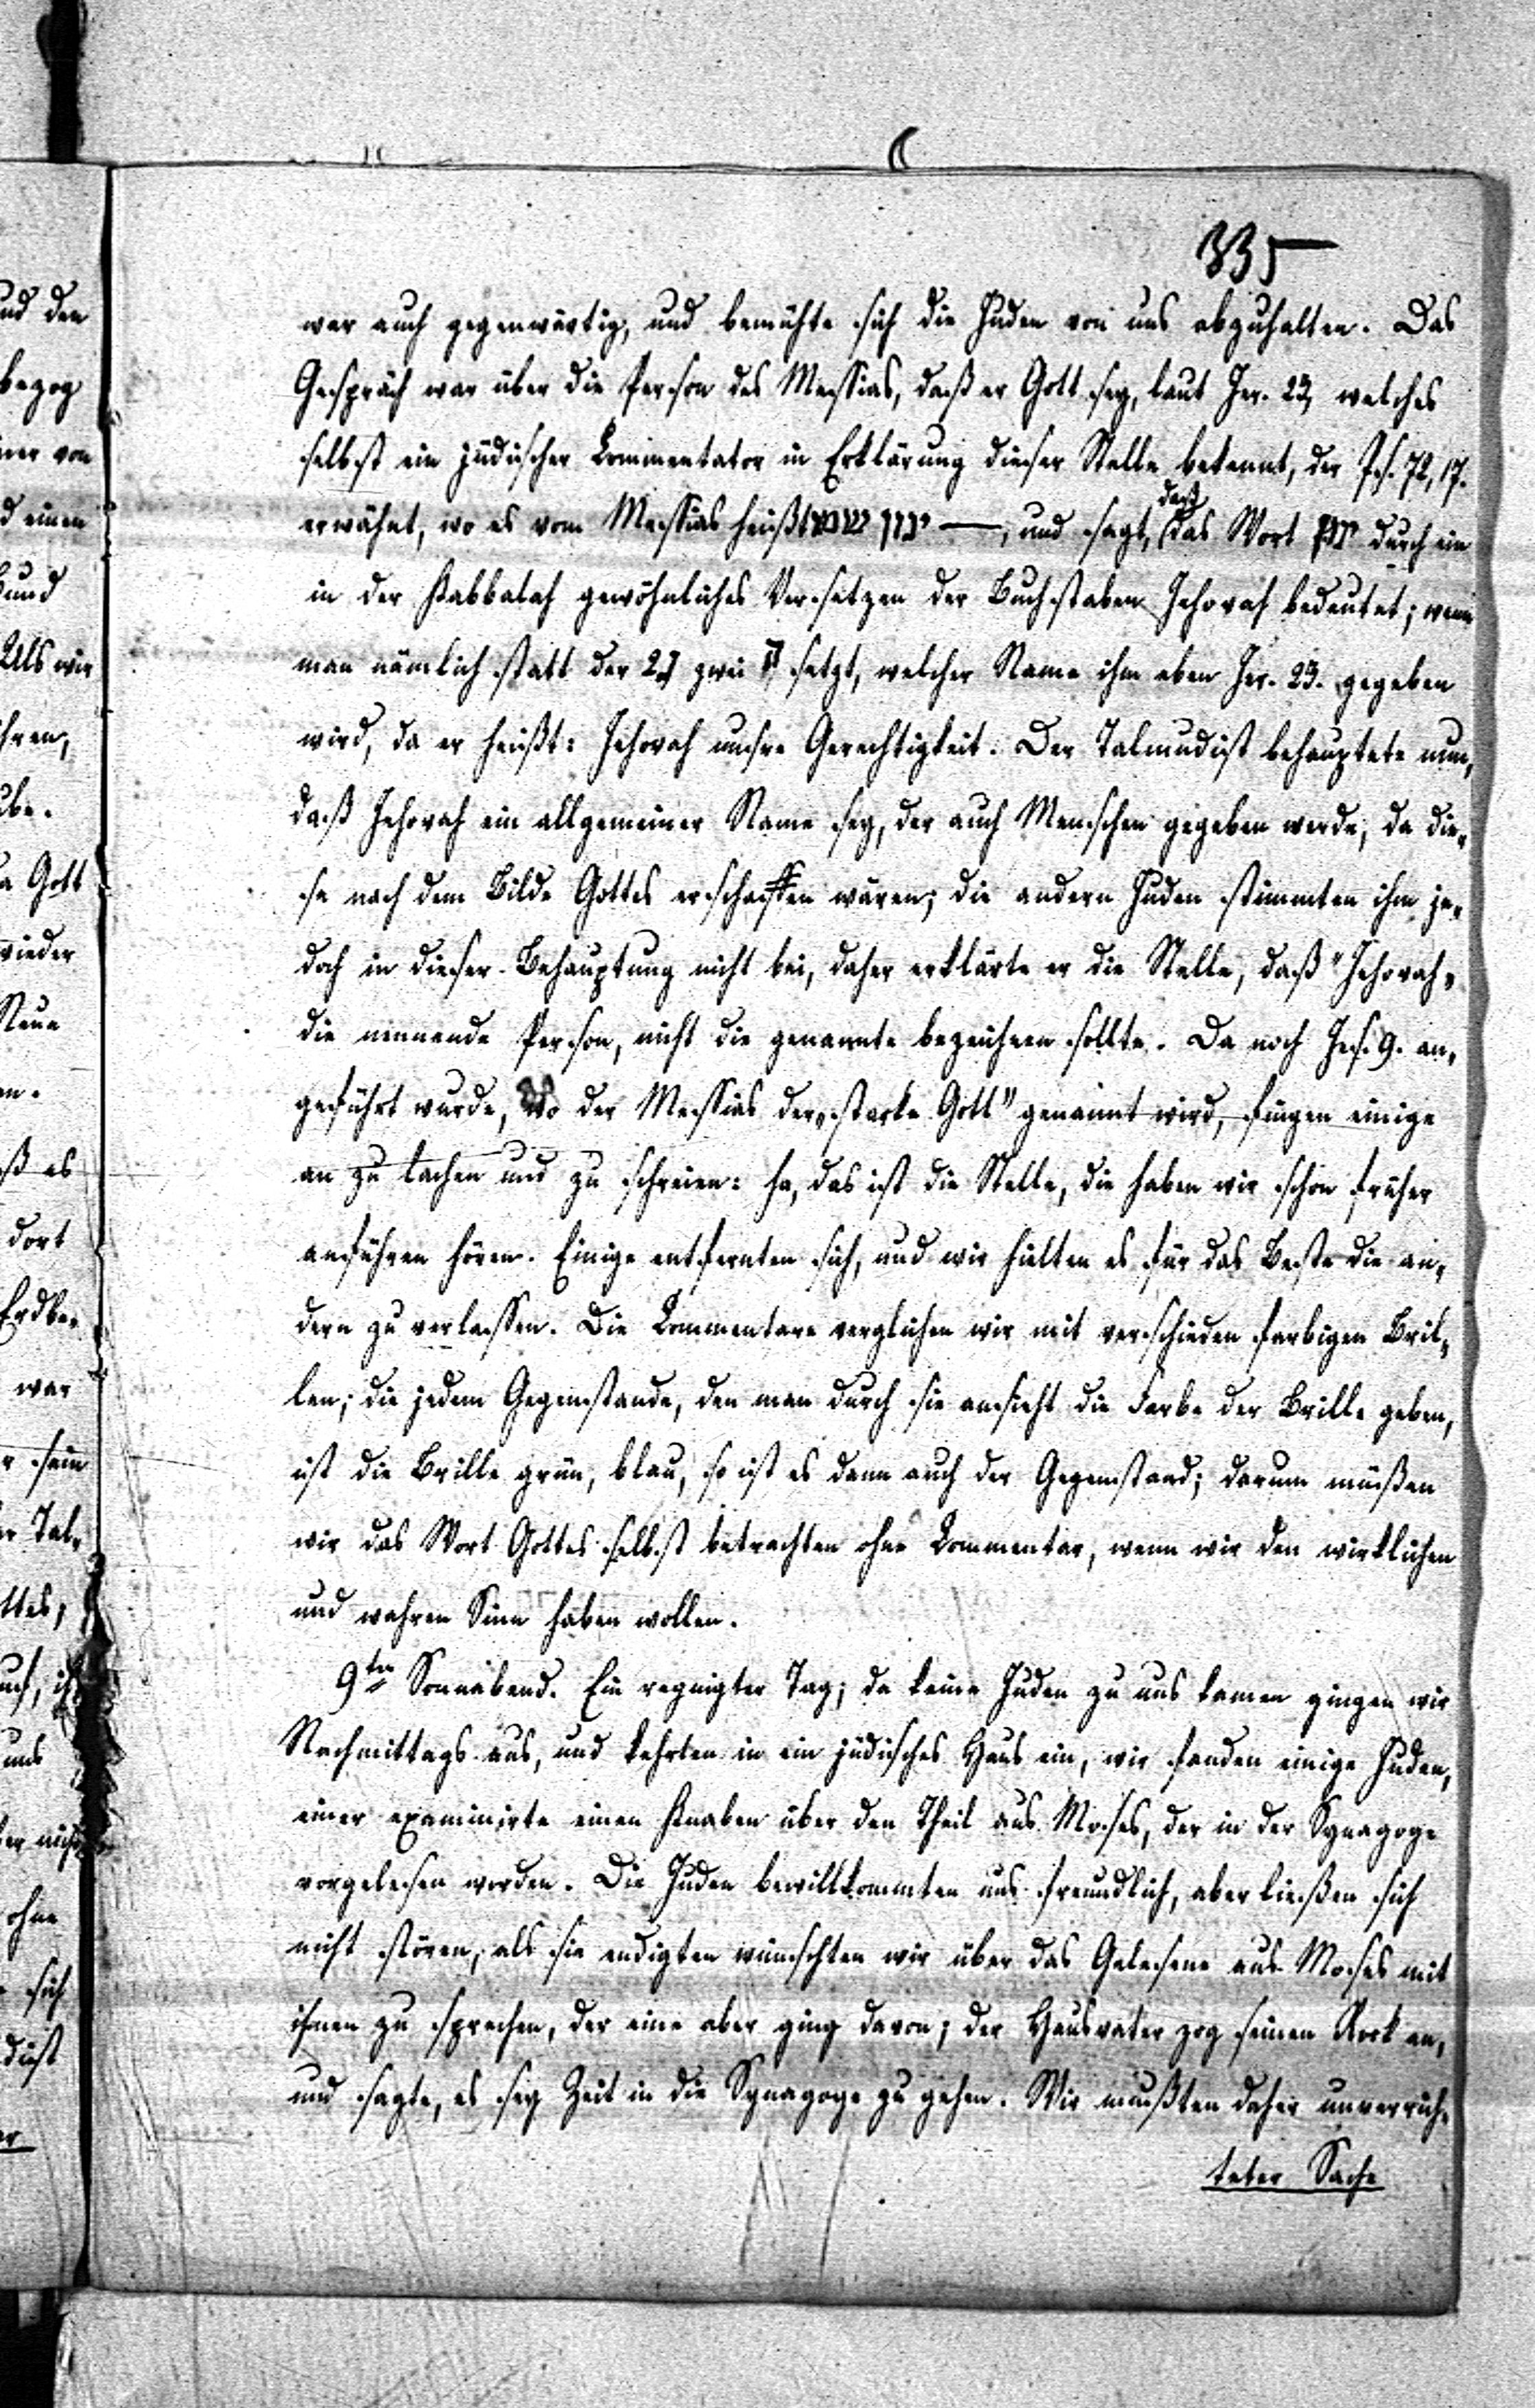 335
war auch gegenwärtig, und bemühte sich die Juden von uns abzuhalten. Das
Gespräch war über die Person des Messias, daß er Gott sey, laut Jer. 23, welches
selbst ein jüdischer Commentator in Erklärung dieser Stelle bekennt, der Ps. 72, 17.
erwähnt, wo es vom Messias heißt ינון שמו —, und sagt, daß das Wort ינון durch ein
in der Kabbalah gewöhnliches Versetzen der Buchstaben Jehovah bedeutet; wenn
man nämlich statt der 2 נ zwei ה setzt, welcher Name ihm eben Jer. 23. gegeben
wird, da er heißt: Jehovah unsre Gerechtigkeit. Der Talmudist behauptete nun,
daß Jehovah ein allgemeiner Name sey, der auch Menschen gegeben werde, da die-
se nach dem Bilde Gottes erschaffen wären; die andern Juden stimmten ihm je-
doch in dieser Behauptung nicht bei, daher erklärte er die Stelle, daß "Jehovah"
die nennende Person, nicht die genannte bezeichnen sollte. Da noch Jes. 9. an-
geführt wurde, wo der Messias der "starke Gott" genannt wird, fingen einige
an zu lachen und zu schreien: ha, das ist die Stelle, die haben wir schon früher
anführen hören. Einige entfernten sich, und wir hielten es für das Beste die an-
dern zu verlassen. Die Commentare verglichen wir mit verschieden farbigen Bril-
len; die jedem Gegenstande, den man durch sie ansieht die Farbe der Brille geben,
ist die Brille grün, blau, so ist es dann auch der Gegenstand; darum müßen
wir das Wort Gottes selbst betrachten ohne Commentar, wenn wir den wirklichen
und wahren Sinn haben wollen.
9ten Sonnabend. Ein regnigter Tag; da keine Juden zu uns kamen gingen wir
Nachmittags aus, und kehrten in ein jüdisches Haus ein, wir fanden einige Juden,
einer examinirte einen Knaben über den Theil aus Moses, der in der Synagoge
vorgelesen worden. Die Juden bewillkommten uns freundlich, aber ließen sich
nicht stören, als sie endigten wünschten wir über das Gelesene aus Moses mit
ihnen zu sprechen, der eine aber ging davon; der Hausvater zog seinen Rock an,
und sagte, es sey Zeit in die Synagoge zu gehen. Wir mußten daher unverrich-
teter Sache